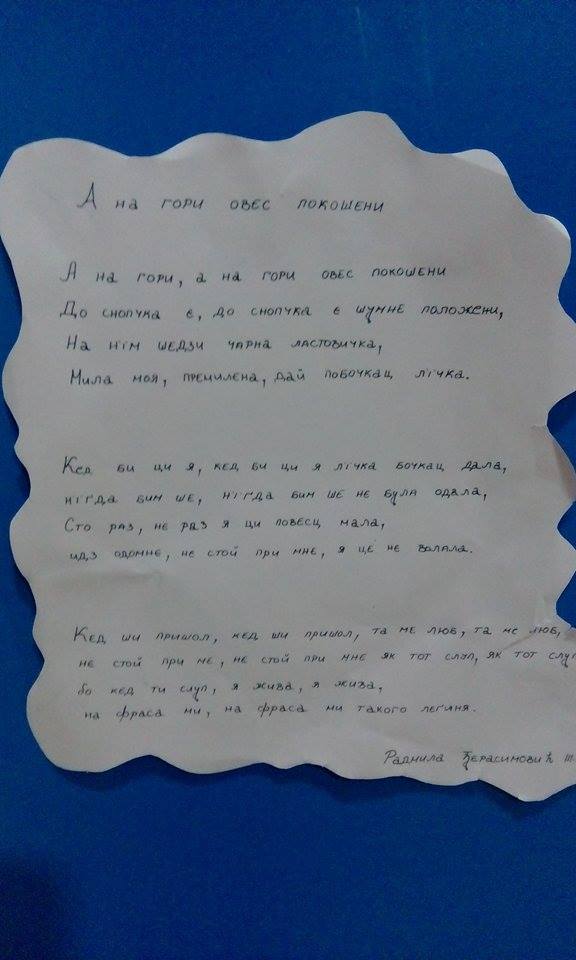 А на гори овес покошени
А на гори, а на гори овес покошени
До снопчка є, до снопчка є шумнє положени,
На нїм шедзи чарна ластовичка,
Мила моя, премилена, дай побочкац лїчка.
Кед би ци я, кед би ци я лїчка бочкац дала,
нїґда бим ше, нїґда бим ше нє була одала,
Сто раз, нє раз я ци повесц мала,
идз одомнє, нє стой при мнє, я це нє волала.
Кед ши пришол, кед ши пришол, та ме люб, та ме люб,
нє стой при мє, нє стой при мнє як тот слуп, як тот слуп
бо кед ти слуп, я жива, я жива,
на фраса ми, на фраса ми такого леґиня.
Радмила Ђерасимовић